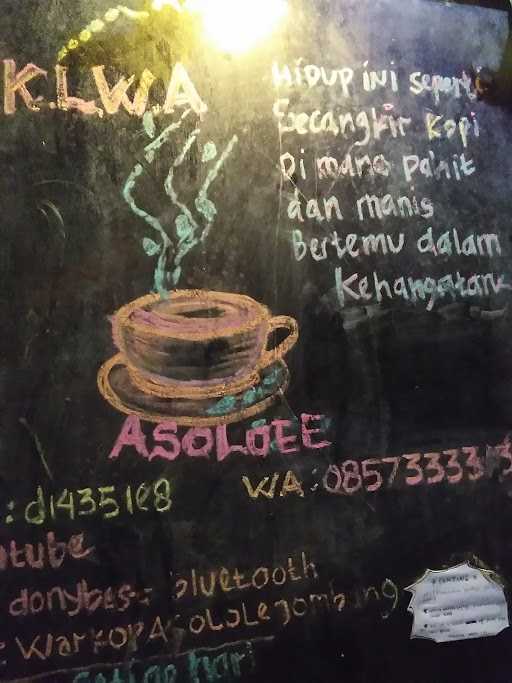 K.L.W.A
Hidup ini seperti
Secangkir Kopi
Di mana pahit
dan manis
Bertemu dalam
Kehangatan
ASOLOEE
: d1435108
WA: 0857333313
utube
donybes: bluetooth
: WarkopAsololejombang
Setiap hari